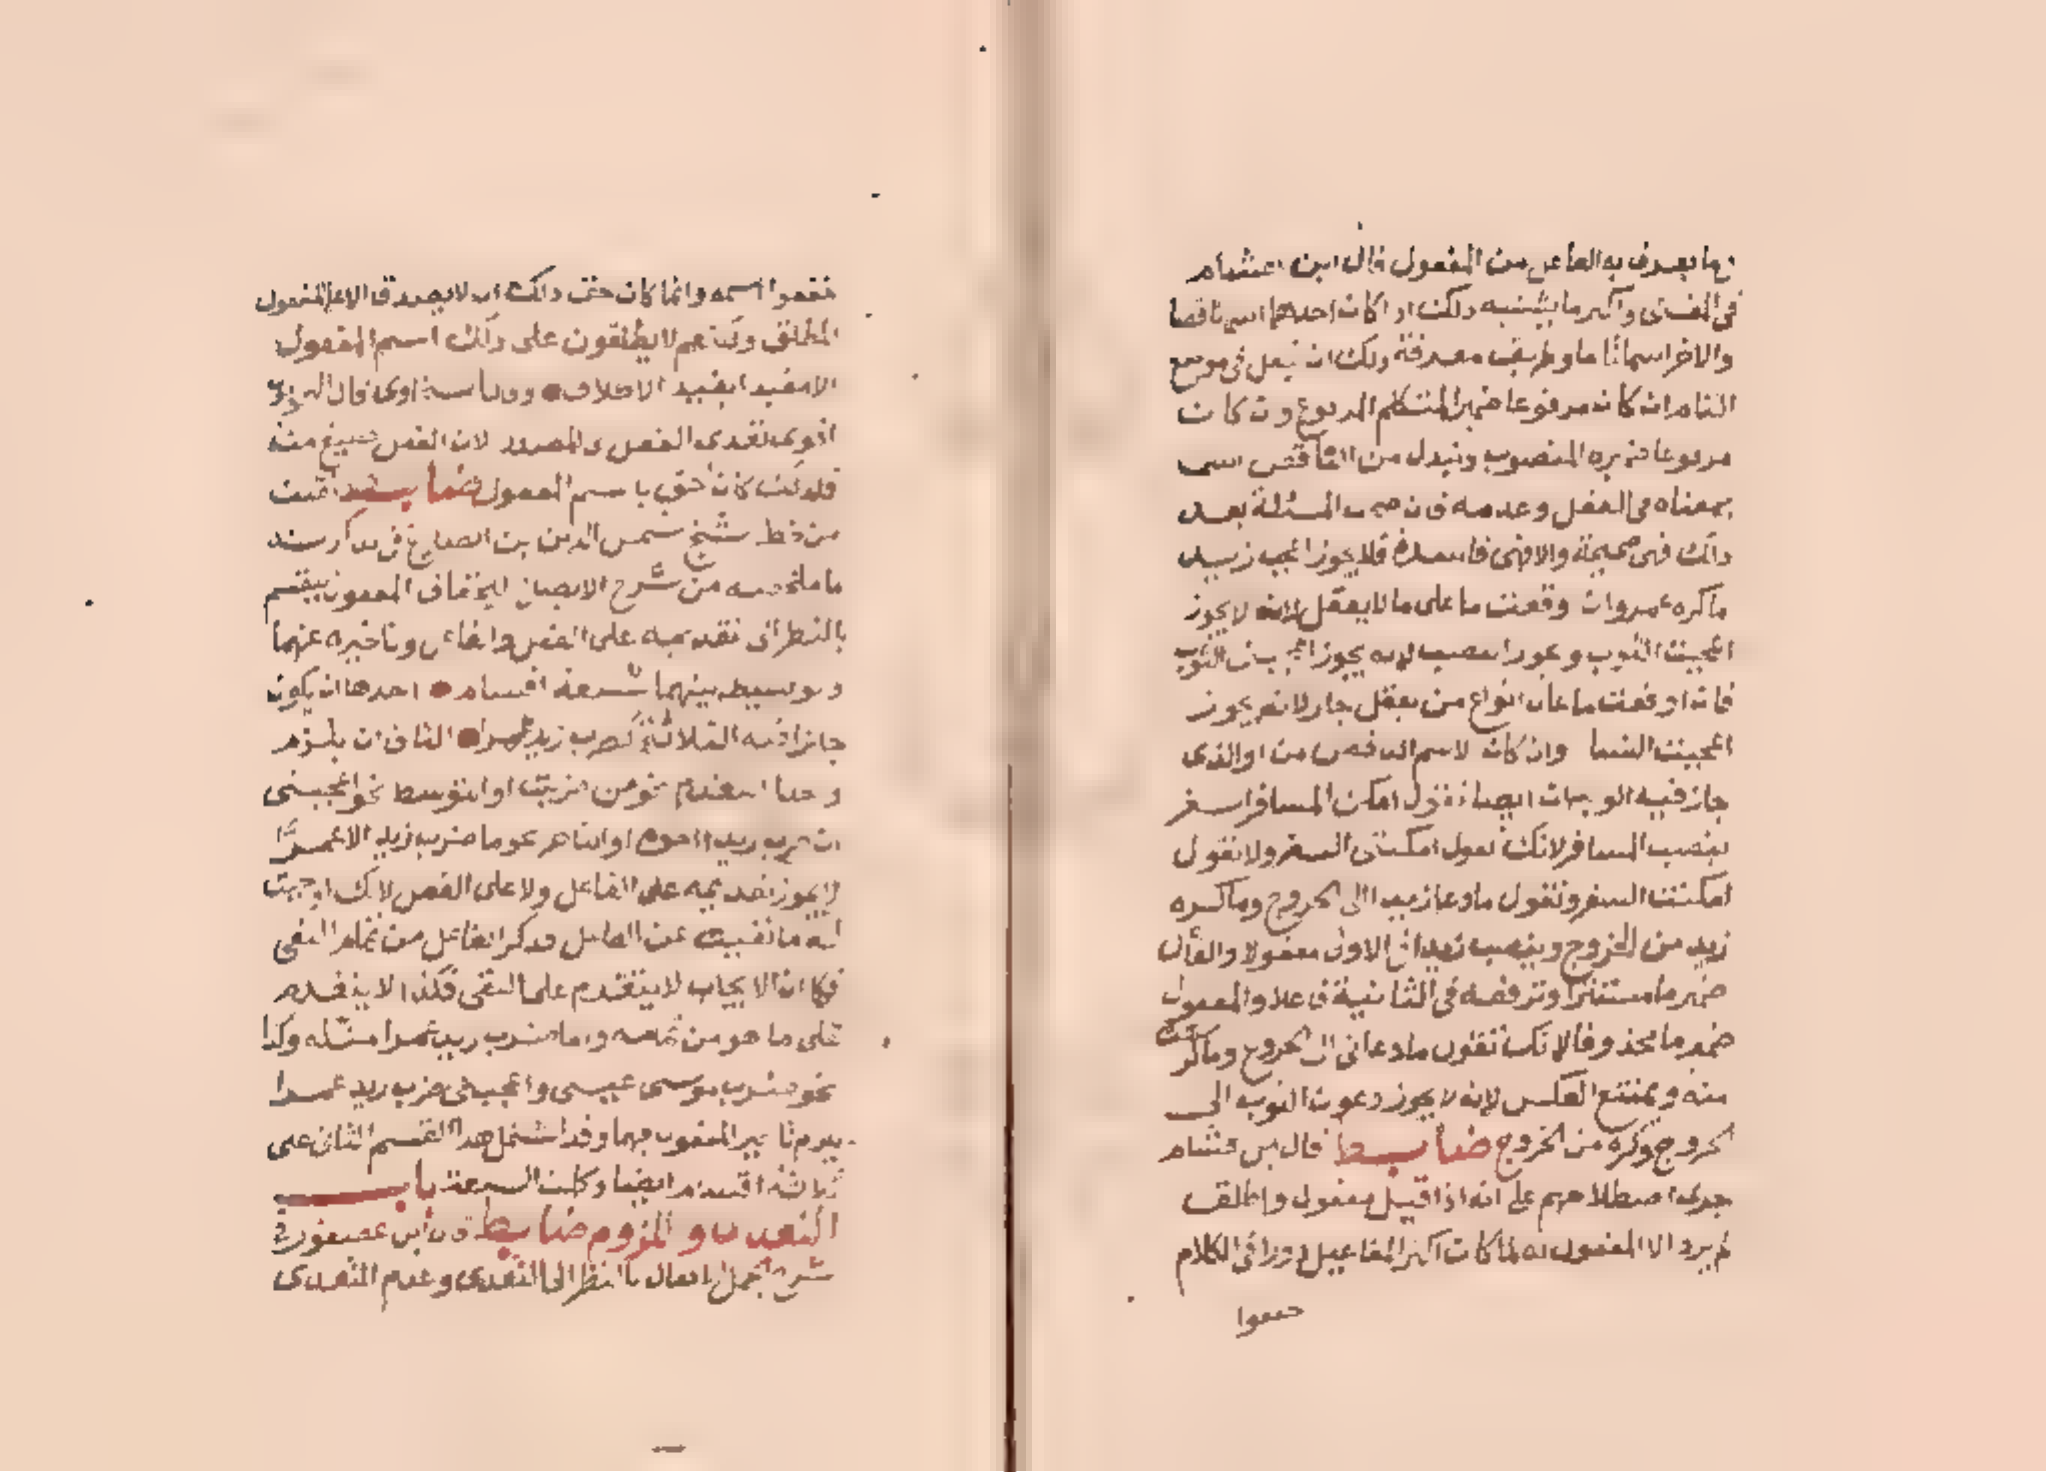 ما يعرف به الفاعل من المفعول قال ابن هشام
في المغني وأكثر ما يشتبه ذلك اذا كان احدهما اسما ناقصا
والاخر اسما تاما وطريق معرفة ذلك ان تجعل في موضع
التام ان كان مرفوعا ضمير المتكلم المرفوع وان كان
ضميره المنصوب وتبدل من الناقص اسما
بمعناه في العقل وعدمه فان صحت المسئلة بعد
ذلك فهي صحيحة والا فهي فاسدة فلا يجوز اعجب زيد
ما كره عمرو ان وقعت ما على ما لا يعقل لانه لا يجوز
اعجبت الثوب ويجوز النصب لانه يجوز الثوب
فان اوقعت ما على انواع من يعقل جاز لانه يجوز
اعجبت النسا وان كان الاسم الناقص من او الذي
جاز فيه الوجهان ايضا تقول امكن المسافر السفر
بنصب المسافر لانك تقول امكنني السفر ولا تقول
امكنت السفر وتقول ما دعا زيدا الى الخروج وما كره
زيد من الخروج وينصب زيدا في الاولى مفعولا والفاعل
ضمير ما مستترا وترفعه في الثانية فاعلا والمفعول
ضمير ما محذوفا لانك تقول ما دعاني الى الخروج وما كرهت
منه ويمتنع العكس لانه لا يجوز دعوت الثوب الى
الخروج وكره من الخروج ضابط قال ابن هشام
جرى اصطلاحهم على انه اذا قيل مفعول واطلق
لم يرد الا المفعول به لما كان اكثر المفاعيل دورا في الكلام
خففوا
خففوا اسمه وانما كان حق ذلك ان لا يصدق الا على المفعول
المطلق ولكنهم لا يطلقون على ذلك اسم المفعول
الا مقيدا بقيد الاطلاق
اقوى تعدي الفعل المصدر لان الفعل صيغ منه
فلذلك كان احق باسم المفعول ضابط
من خط شيخ شمس الدين بن الصايغ في تذكرته
ما ملخصه من شرح الايضاح للخفاف المفعول ينقسم
بالنظر الى تقديمه على الفعل والفاعل وتاخيره عنهما
وتوسيطه بينهما سبعة اقسام احدها ان يكون
جائزا فيه الثلاثة كضرب زيد عمرا الثاني ان يلزم
واحدا التقديم نحو من ضربت او التوسط نحو اعجبني
ان ضرب زيدا اخوه او التاخر نحو ما ضرب زيد الا عمرا
لا يجوز تقديمه على الفاعل ولا على الفعل لانك اوجبت
له ما نفيت عن الفاعل وذكر الفاعل من تمام النفي
فكما ان الايجاب لا يتقدم على النفي فكذا لا يتقدم
على ما هو من تمامه وما ضرب زيد عمرا مثله وكذا
نحو ضرب موسى عيسى واعجبني ضرب زيد عمرا
يلزم تاخير المفعول فيهما وقد اشتمل هذا القسم الثاني على
ثلاثة اقسام ايضا وكلت السبعة باب
التعدي واللزوم ضابط قال ابن عصفور في
شرح الجمل الافعال بالنظر الى التعدي وعدم التعدي